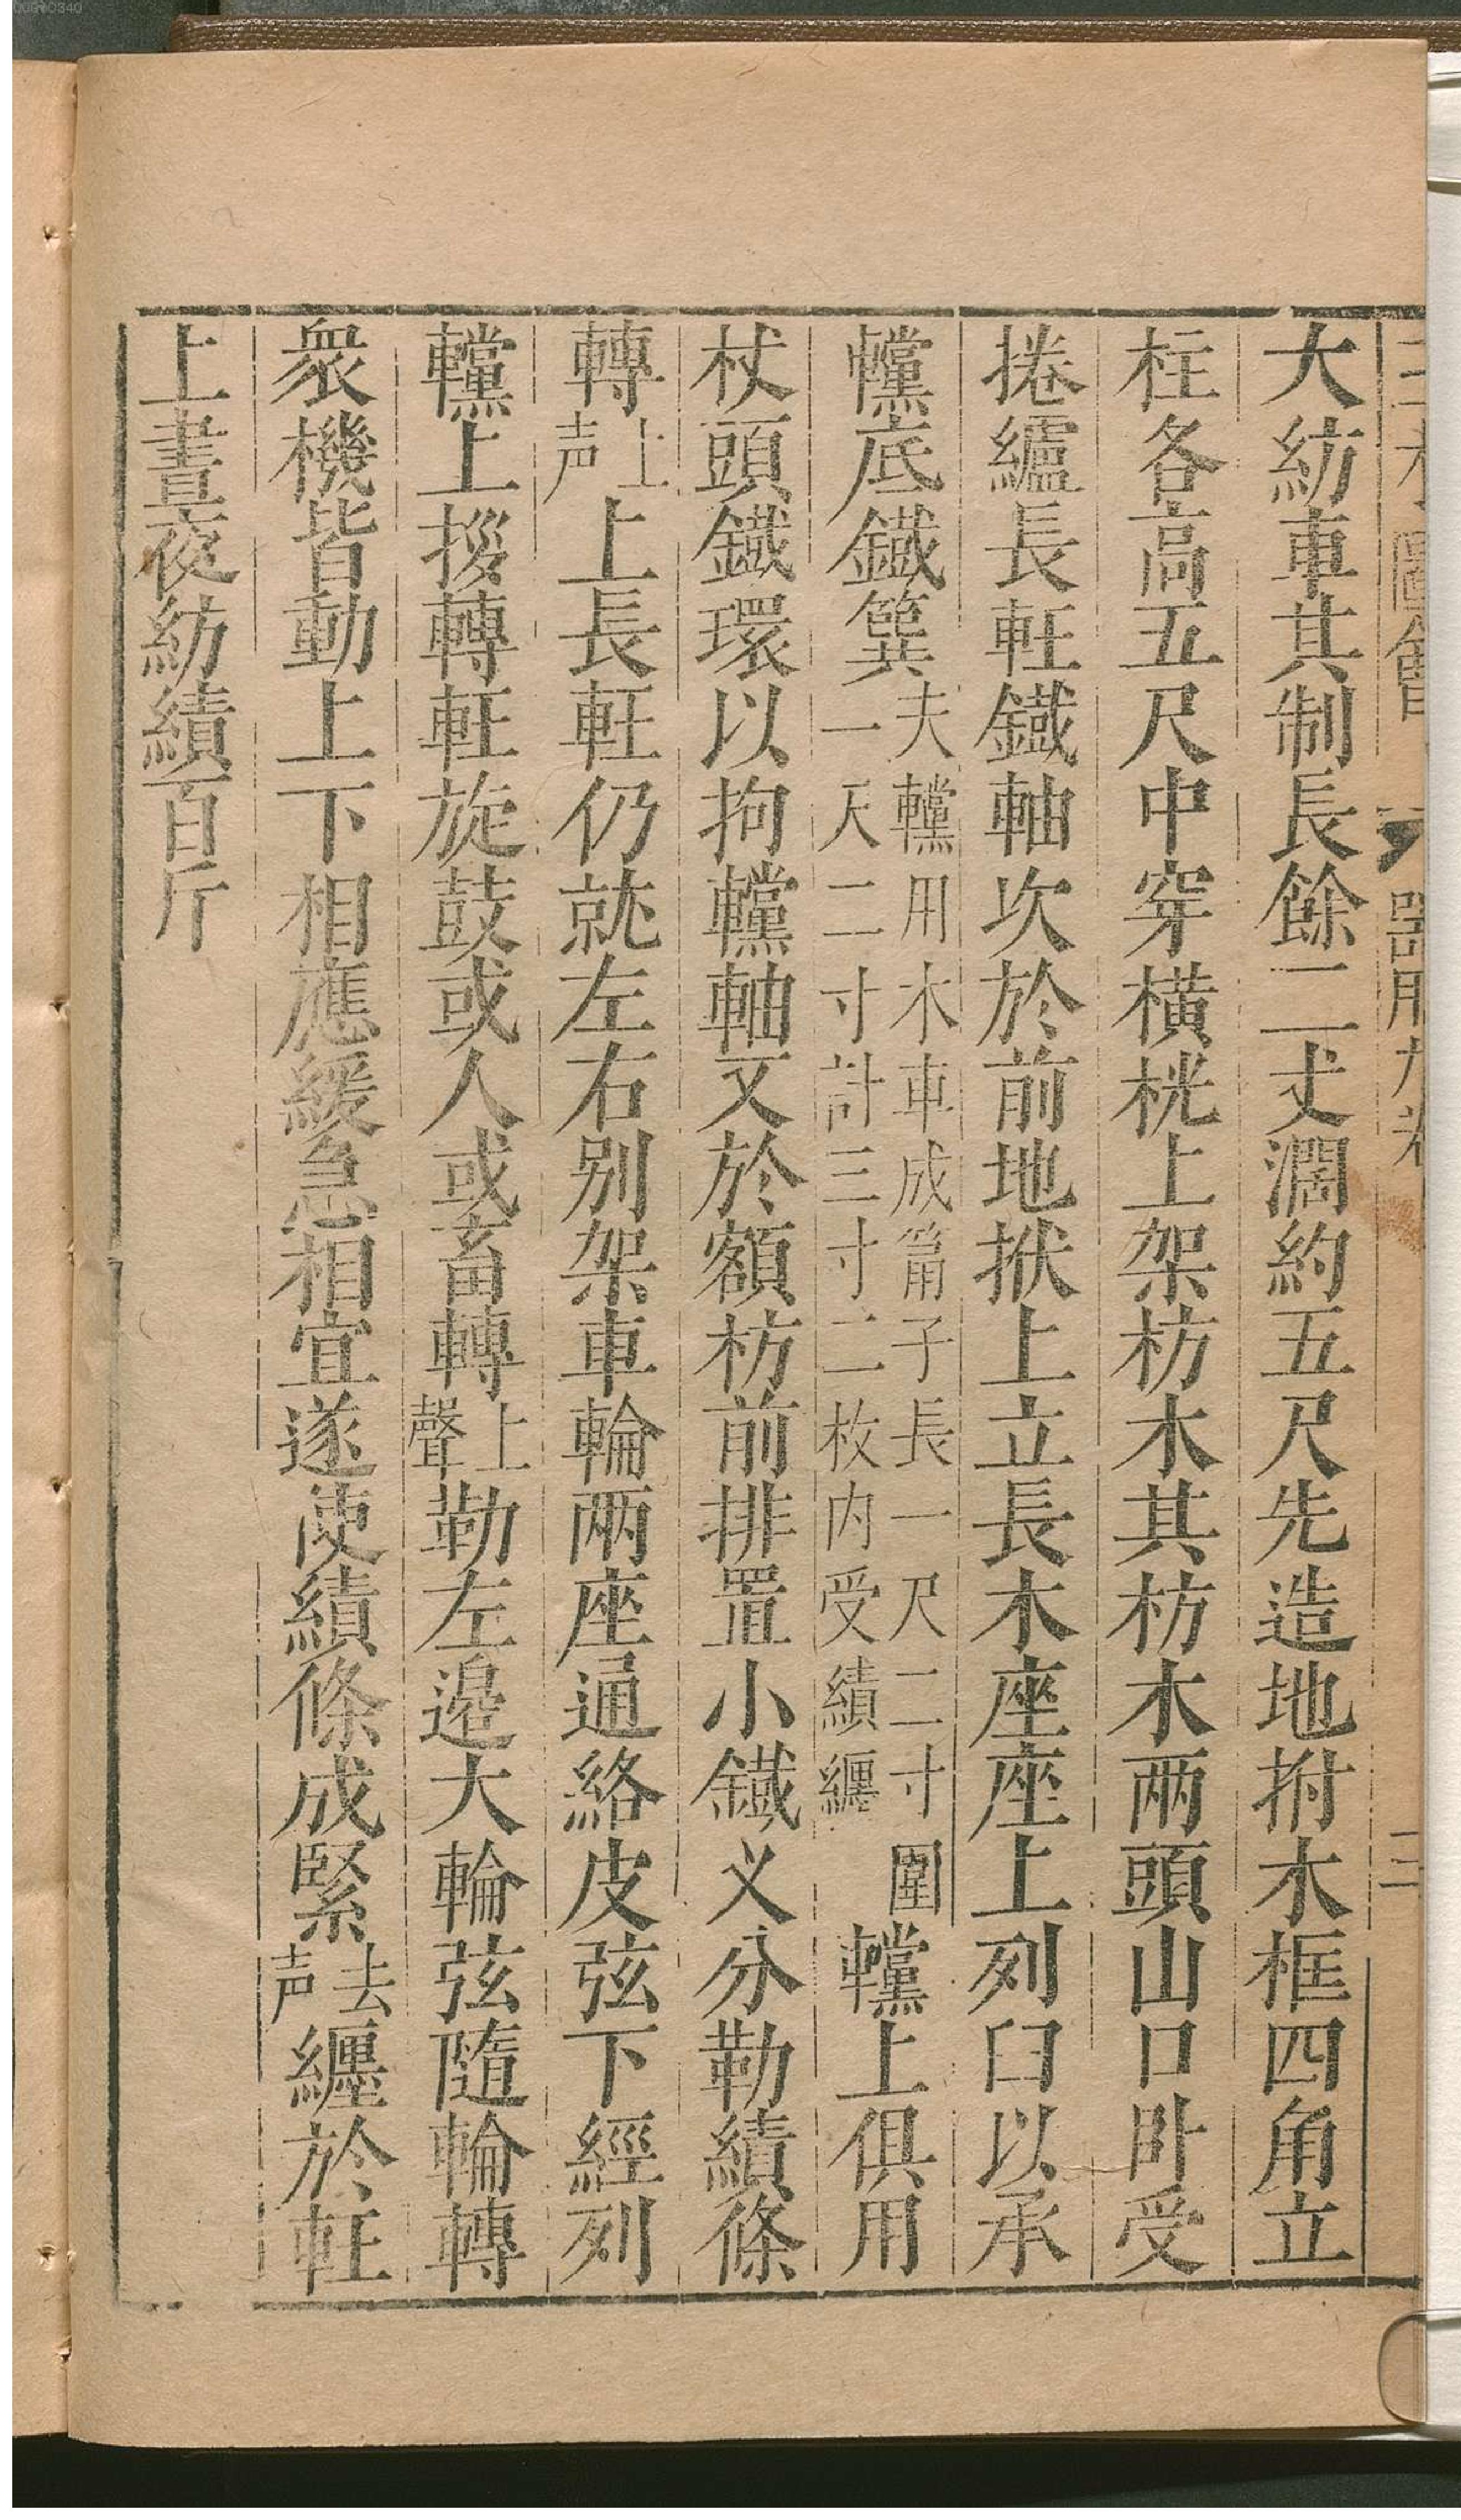 大紡車其制長餘二丈濶約五尺先造地拊木框四角立
柱各高五尺中穿橫桄上架枋木其枋木兩頭山口卧受
捲纑長軖鐵軸次於前地栿上立長木座座上列臼以承
𨏴底鐵簨夫𨏴用木車成筩子長一尺二寸圍
一尺二寸計三寸二枚内受績纏
𨏴上俱用
杖頭鐵環以拘𨏴軸又於額枋前排置小鐵义分勒績條
轉上声上長軖仍就左右别架車輪兩座通絡皮弦下經列
𨏴上拶轉軖旋鼓或人或畜轉上聲勒左邉大輪弦隨輪轉
衆機皆動上下相應緩急相宜遂使績條成緊去声纏於軖
上晝夜紡績百斤